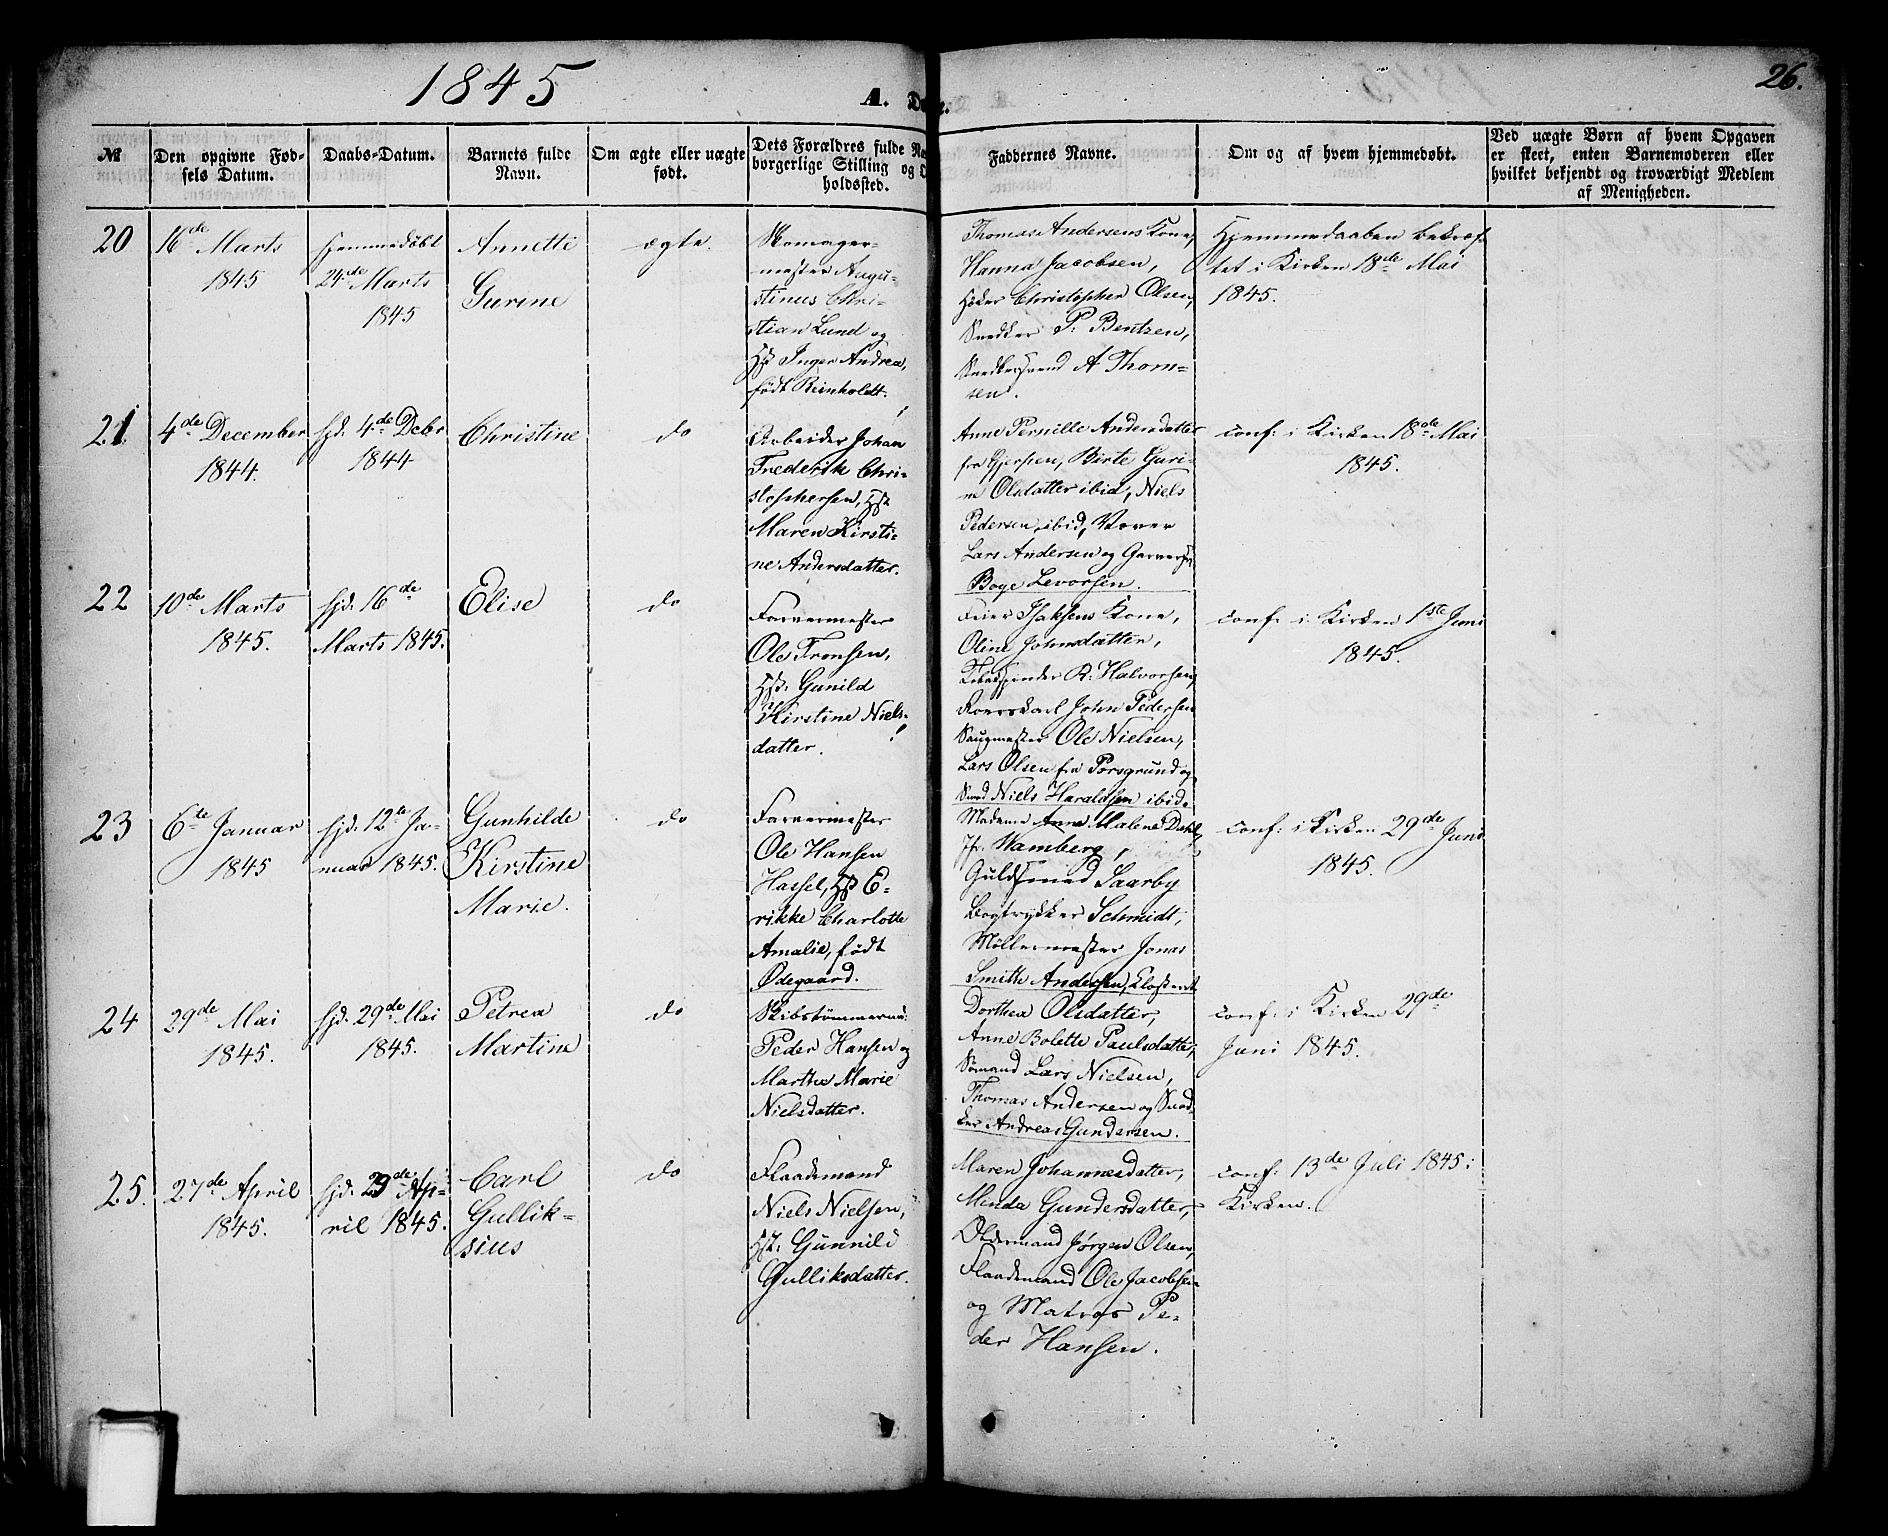 1845
A. D
e.
26.
№
Den opgivne Fød-
sels Datum.
Daabs-Datum.
Barnets fulde
Navn.
Om ægte eller uægte
født.
Dets Forældres fulde
borgerlige Stilling og
holdssted.
Faddernes Navne.
Om og af hvem hjemmedøbt.
Ved uægte Børn af hvem Opgaven
er skeet, enten Barnemoderen eller
hvilket bekjendt og troværdigt Medlem
af Menigheden.
20
16de Marts
1845
Hjemmedøbt
24de Marts
1845
Annette
Gurine
ægte.
Skomager-
mester Augu-
stinus Chri-
stian Lund og
Hst Inger Andrea,
født Reinholdt.
Thomas Andersens Kone,
Hanna Jacobsen,
Høker Christopher Olsen,
Snedker P. Bentzen,
Snedkersvend A Thom-
sen.
Hjemmedaaben bekræf-
tet i Kirken 18de Mai
1845.
21
4de December
1844.
hjd. 4de Debr
1844
Christine
do
Arbeider Johan
Frederik Chri-
stophersen, Hst
Maren Kirsti-
ne Andersdatter.
Anne Pernille Andersdatter
fra Gjerpen, Birte Guri-
ne Olsdatter ibid, Niels
Pedersen, ibid, Væver
Lars Andersen og
Boye Levorsen.
conf: i Kirken 18de Mai
1845.
22
10de Marts
1845.
hjd. 16de
Marts 1845.
Elise
do
Farvermester
Ole Fronsen,
Hst: Gunild
Kirstine Niels-
datter.
Feier Isaksens Kone,
Oline Johnsdatter,
R. Halvorsen,
John Pedersen
Saugmester Ole Nielsen,
Lars Olsen fra Porsgrund og
Niels Haraldsen ibid.
conf: i Kirken 1ste Juni
1845.
23
6te Januar
1845
hjd. 12te Ja-
nuar 1845.
Gunhilde
Kirstine
Marie.
do
Farvermester
Ole Hansen
Hassel, Hst E-
rikke Charlotte
Amalie, født
Ødegaard.
Madame Anne Malene Dahl,
Jfr. Wamberg,
Guldsmed Saarby
Bogtrykker Schmidt,
Møllermester Jonas
Smith Andersen, Klosteret
conf: i Kirken 29de Juni
1845.
24
29de Mai
1845.
hjd. 29de Mai
1845.
Petrea
Martine
do
Skibstømmerm:
Peder Hansen og
Marthe Marie
Nielsdatter.
Dorthea Olsdatter,
Anne Bolette Paulsdatter,
Sømand Lars Nielsen,
Thomas Andersen og Sned-
ker Andreas Gundersen.
conf: i Kirken 29de
Juni 1845.
25.
27de April
1845.
hjd. 29de Ap-
ril 1845.
Carl
Gullik-
sius
do
Flaademand
Niels Nielsen,
Hst: Gunnild
Gulliksdatter.
Maren Johannesdatter,
Minda Gundersdatter,
Oldermand Jørgen Olsen,
Flaademand Ole Jacobsen
og Matros Pe-
der Hansen.
conf: 13de Juli 1845 i
Kirken.